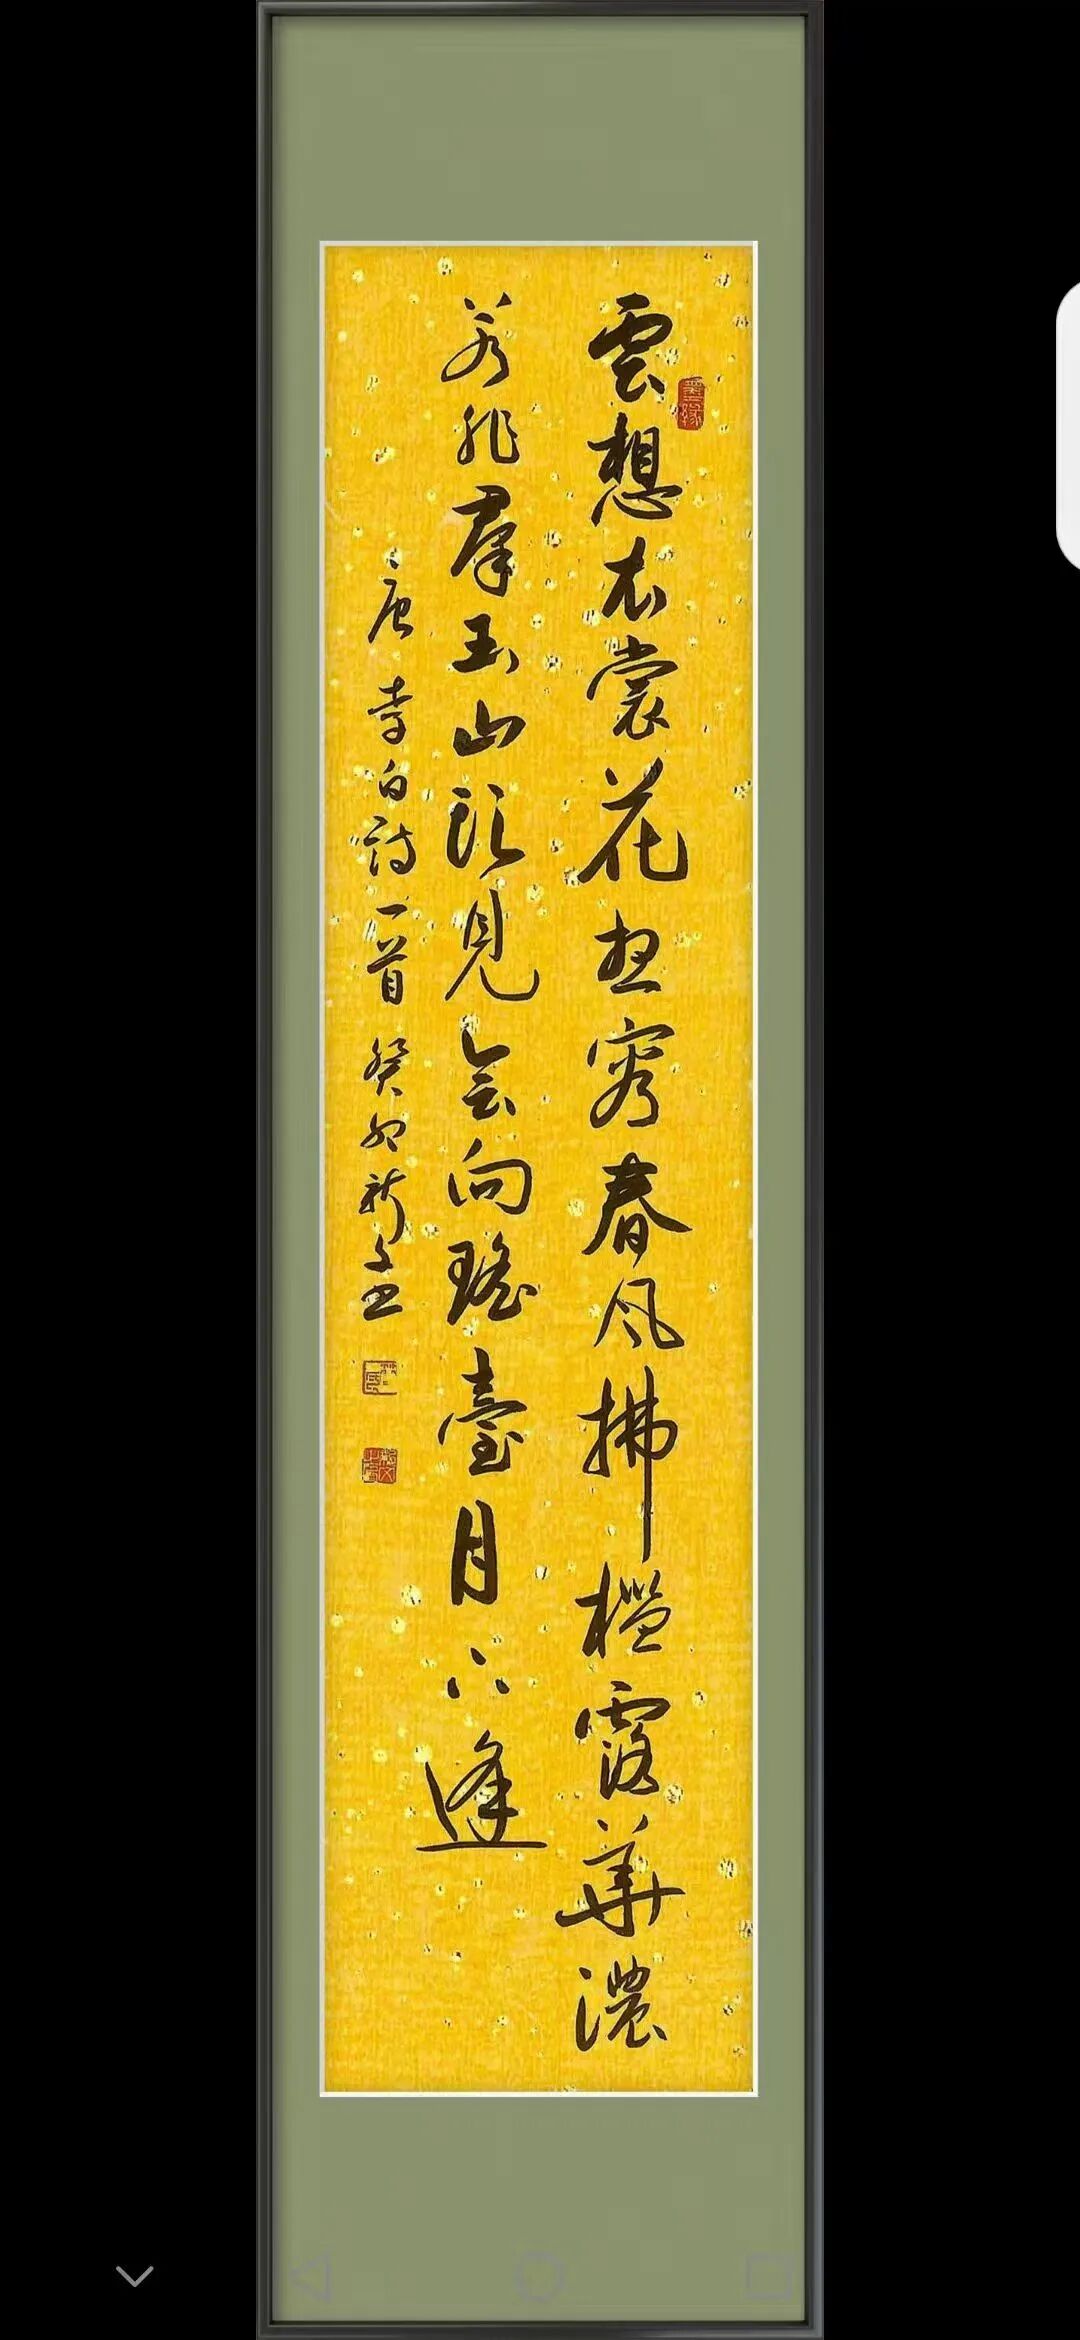 雲想衣裳花想容春風拂檻露華濃
若非群玉山頭見會向瑤臺月下逢
唐李白詩一首癸卯新文